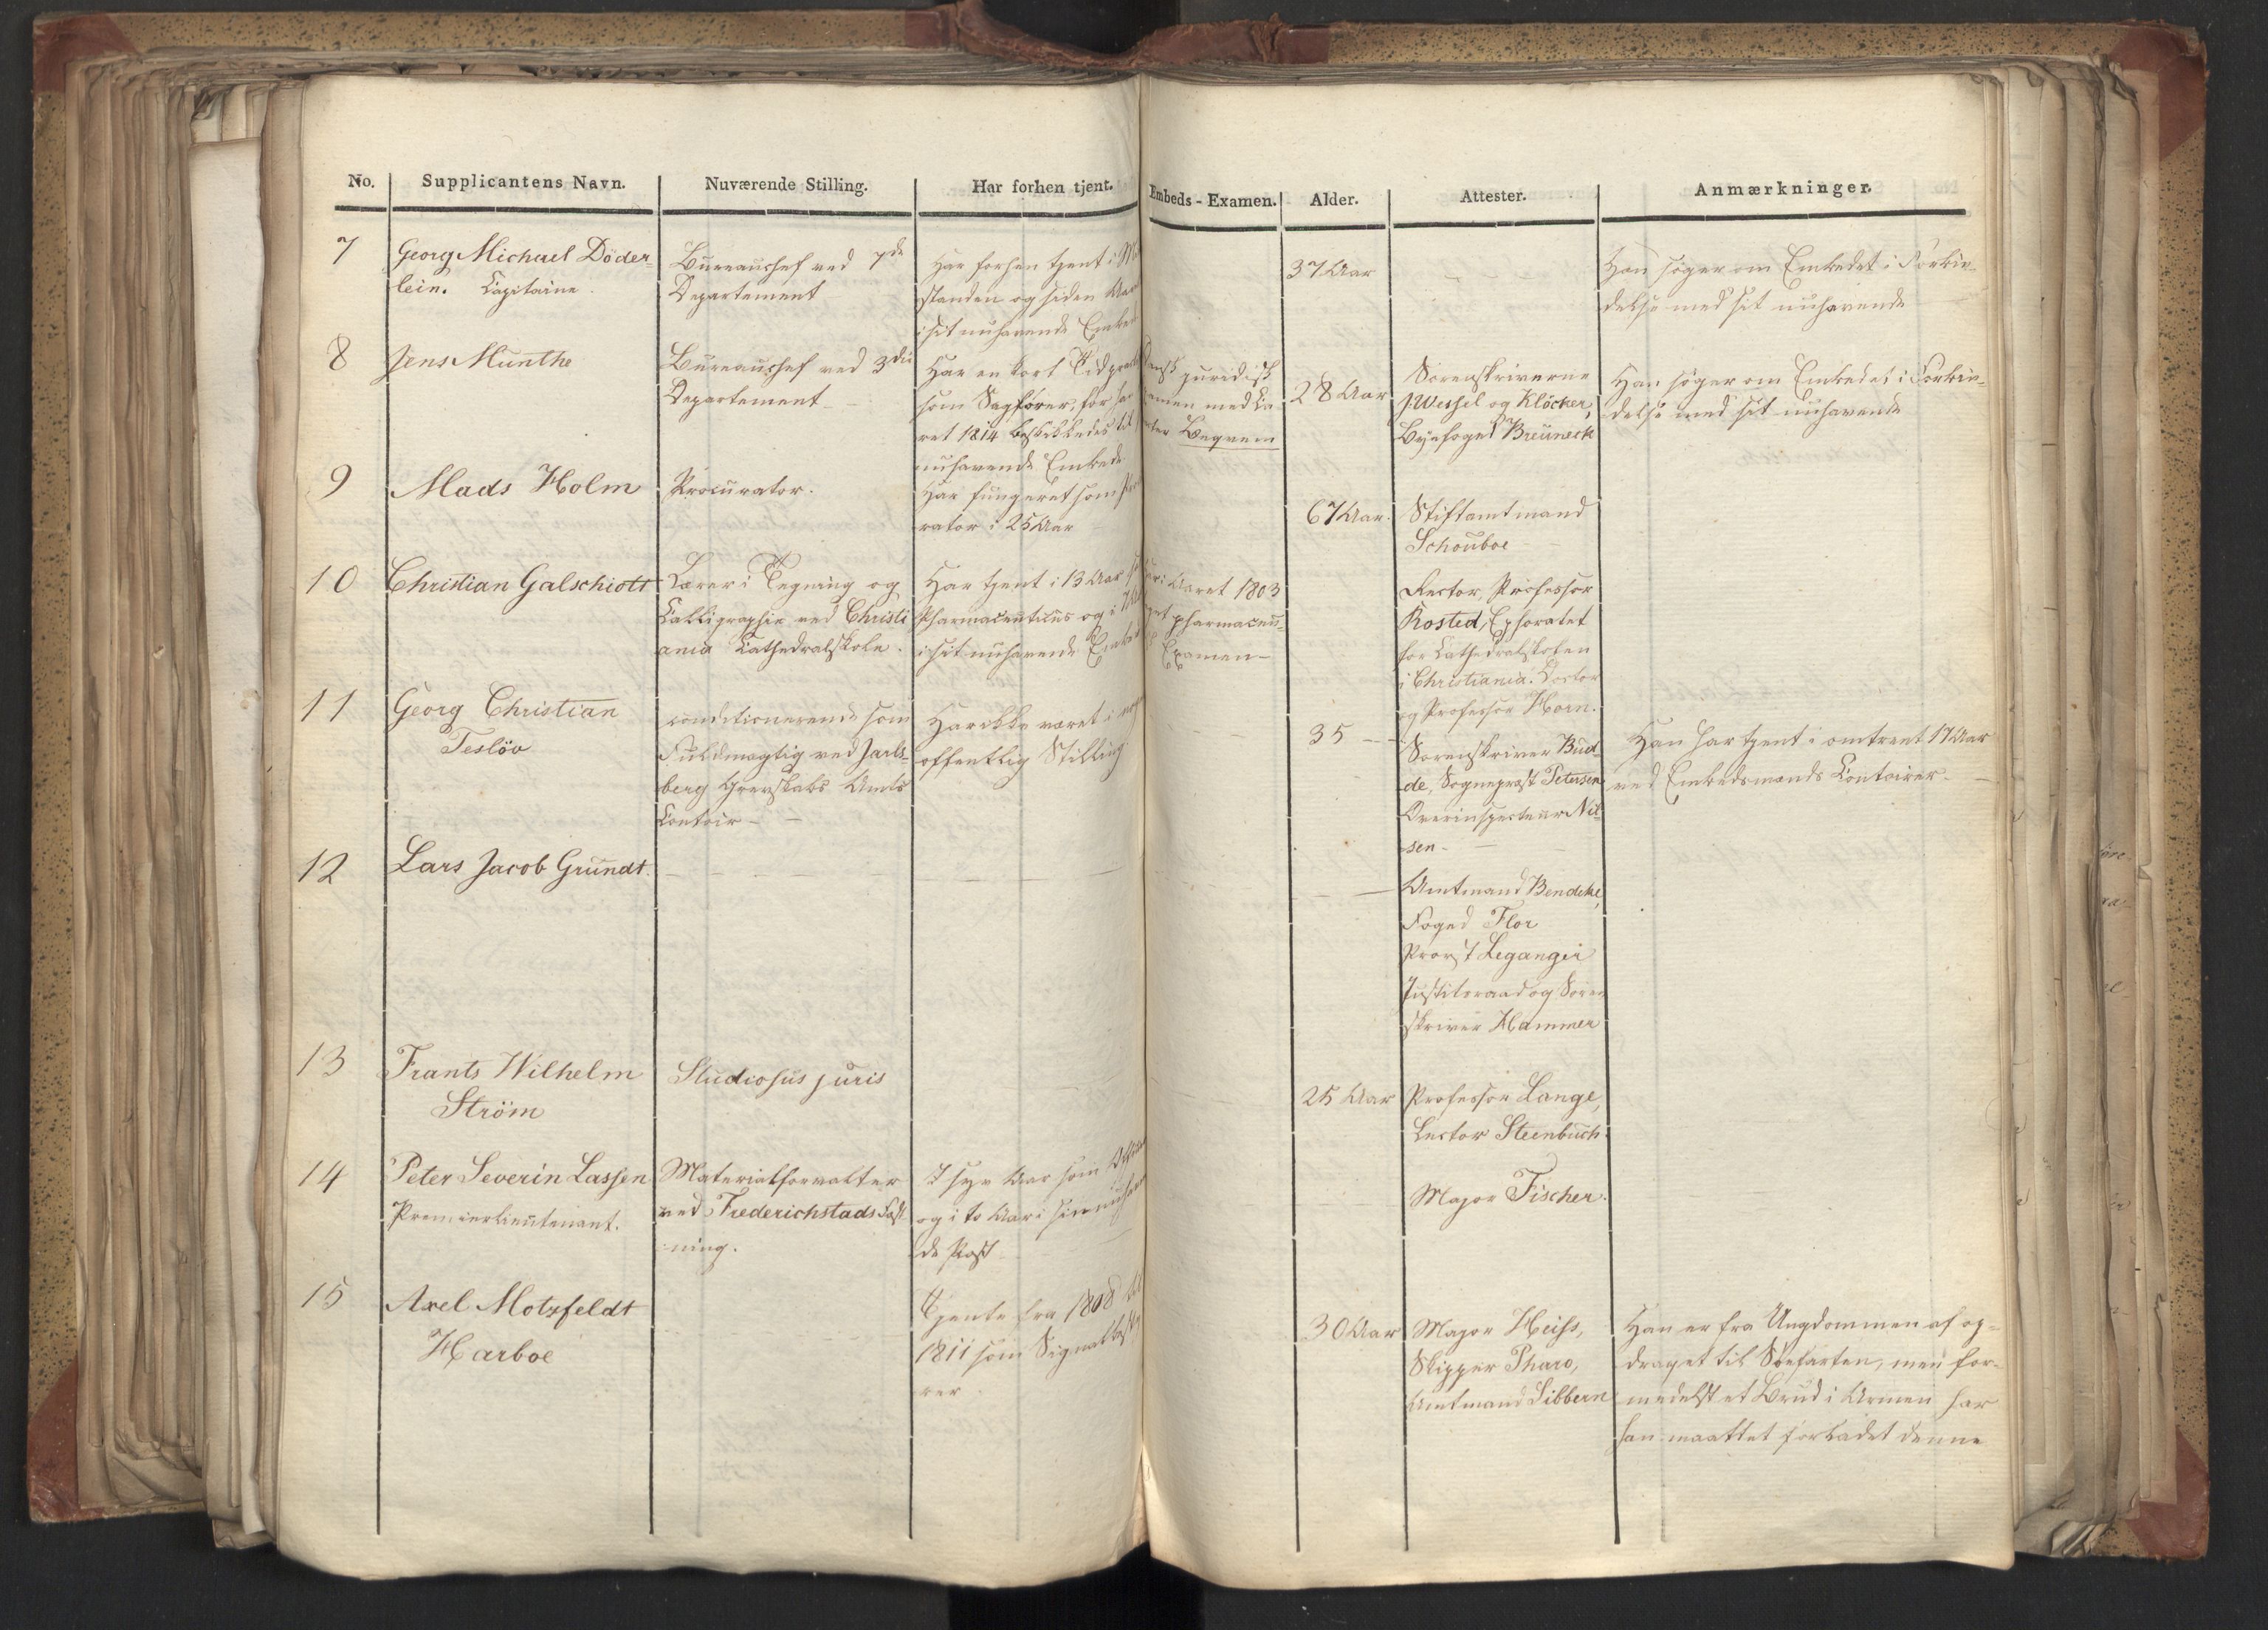 No. Supplicantens Navn. Nuværende Stilling. Har forhen tjent. Embeds-Examen. Alder. Attester. Anmærkninger.
7
Georg Michael Döder-
lein. Capitaine.
Bureauchef ved 7de
Departement
Har forhen tjent i
standen og siden
i sit nuhavende
37 Aar
Han søger om Embedet i Forbin-
delse med sit nuhavende
8
Jens Munthe
Bureauchef ved 3die
Departement
Har en kort Tid
som Sagfører, før
ret 1814 beskikkedes til
nuhavende Embede
juridisk
med Ca
Beqvem
28 Aar
Sorenskriverne
J. Wessel og Klöcker,
Byefoged Breüneck
Han søger om Embedet i Forbin-
delse med sit nuhavende
9
Mads Holm
Procurator.
Har fungeret som
rator i 25 Aar
67 Aar.
Stiftamtmand
Schouboe
10
Christian Galschiott
Lærer i Tegning og
Calligraphie ved Christi
ania Cathedralskole.
Har tjent i 13 Aar
Pharmaceuticus og i
i sit nuhavende
Aaret 1803
pharmaceu-
Examen
Rector, Professor
Rosted, Ephoratet
for Cathedralskolen
i Christiania. Doctor
og Professor Horn.
11
Georg Christian
Teslöv
conditionerende som
Fuldmægtig ved Jarls-
berg Grevskabs Amts
Contoir
Har ikke været i
offentlig Stilling
35
Sorenskriver Bud-
de, Sognepræst Petersen
Overinspecteur Niel-
sen
Han har tjent i omtrent 17 Aar
ved Embedsmænds Contoirer
12
Lars Jacob Grundt.
Amtmand Bendeke,
Foged Flor
Provst Leganger
Justitsraad og Soren
skriver Hammer
13
Frants Wilhelm
Ström
Studiosus juris
25 Aar
Professor Lange,
Lector Steenbuch.
14
Peter Severin Lassen
Premierlieutenant.
Materialforvalter
ved Frederichstads Fæst
ning.
I syv Aar som
og i to Aar i sin
de Post
Major Fischer.
15
Axel Motzfeldt
Harboe
Tjente fra 1808 til
1811 som
rer
30 Aar
Major Heiss,
Skipper Pharo,
Amtmand Sibbern
Han er fra Ungdommen af op-
draget til Søefarten, men for-
medelst et Brud i Armen har
han maattet forladet denne